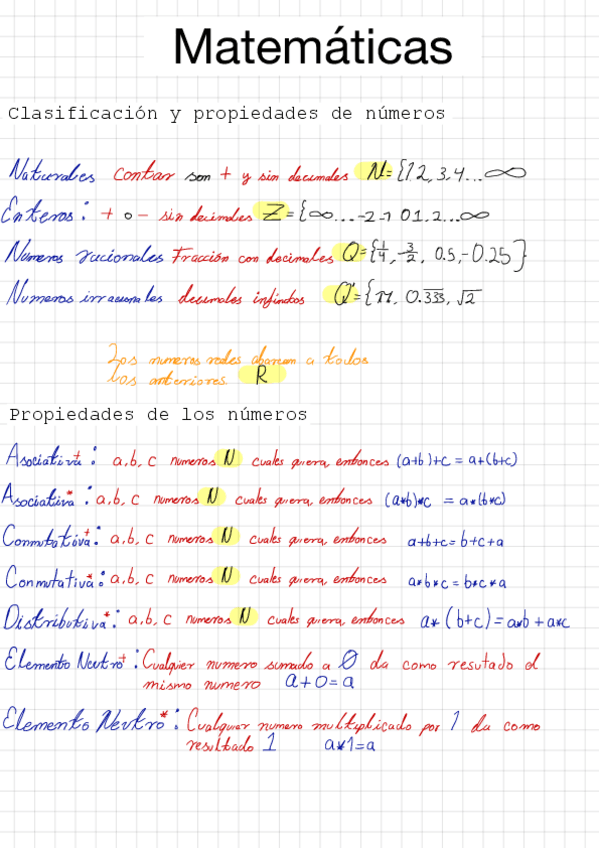 Matemáticas
Clasificación y propiedades de números
Naturales contar son + y sin decimales N={1.2,3.4...∞
Enteros: + o - sin decimales Z={∞...-2-1 01.2...∞
Números racionales Fracción con decimales Q={1/4,-3/2, 0.5,-0.25}
Numeros irracionales decimales infinitos Q'={π, 0.3̅3̅3̅, √2
Los numeros reales abarcan a todos
los anteriores R
Propiedades de los números
Asociativa+: a,b,c numeros N cuales quiera, entonces (a+b)+c = a+(b+c)
Asociativa*: a,b,c numeros N cuales quiera, entonces (a*b)*c = a*(b*c)
Conmutativa+: a,b,c numeros N cuales quiera, entonces a+b+c=b+c+a
Conmutativa*: a,b,c numeros N cuales quiera, entonces a*b*c=b*c*a
Distributiva*: a,b,c numeros N cuales quiera, entonces a*(b+c)=a*b+a*c
Elemento Neutro+: Cualquier numero sumado a 0 da como resutado el
mismo numero a+0=a
Elemento Neutro*: Cualquier numero multiplicado por 1 da como
resultado 1 a*1=a